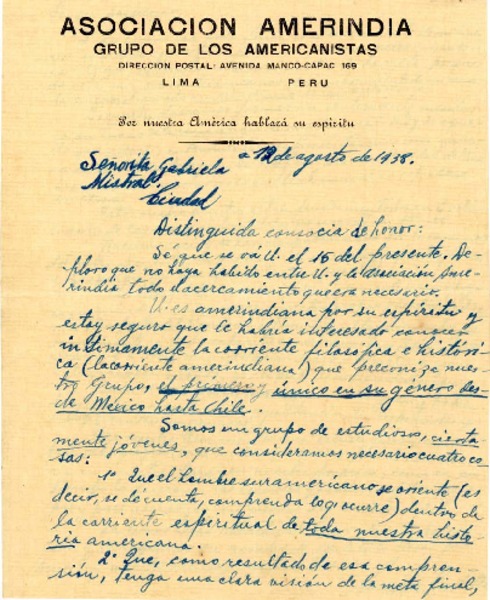 ASOCIACION AMERINDIA
GRUPO DE LOS AMERICANISTAS
DIRECCION POSTAL: AVENIDA MANCO-CAPAC 169
LIMA PERU
Por nuestra América hablará su espíritu
a 12 de agosto de 1938.
Señorita Gabriela
Mistral.
Ciudad
Distinguida consocia de honor:
Sé que se vá U. el 15 del presente. De-
ploro que no haya habido entre U. y la Asociación Ame-
rindia todo el acercamiento que era necesario.
U. es amerindiana por su espíritu y
estoy seguro que le habría interesado conocer
intimamente la corriente filosófica e histó-
rica (la corriente amerindiana) que preconiza nues-
tro Grupo, el primero y único en su género des-
de México hasta Chile.
Somos un grupo de estudiosos, cierta-
mente jóvenes, que consideramos necesario cuatro co-
sas:
1º Que el hombre suramericano se oriente (es
decir, se dé cuenta, comprenda lo q' ocurre) dentro de
la corriente espiritual de toda nuestra histo-
ria americana.
2º Que, como resultado de esa compren-
sión, tenga una clara visión de la meta final,